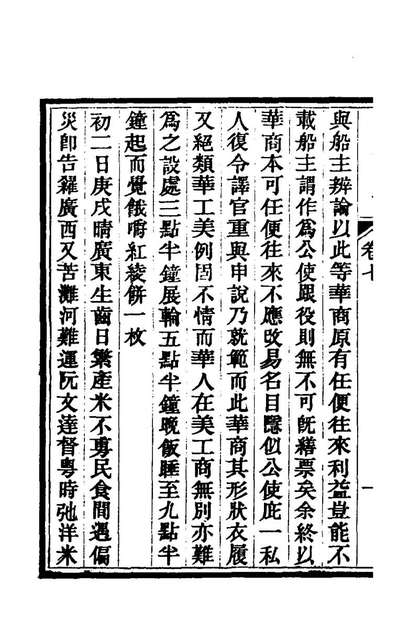 卷七
一
與船主辨論以此等華商原有任便往來利益豈能不
載船主謂作爲公使跟役則無不可旣繕票矣余終以
華商本可任便往來不應改易名目隱似公使庇一私
人復令譯官重與申說乃就範而此華商其形狀衣履
又絕類華工美例固不情而華人在美工商無別亦難
爲之設處三點半鐘展輪五點半鐘晚飯睡至九點半
鐘起而覺餓啃紅綾餅一枚
初二日庚戌晴廣東生齒日繁產米不旉民食間遇偏
災卽告糴廣西又苦灘河難運阮文達督粵時弛洋米